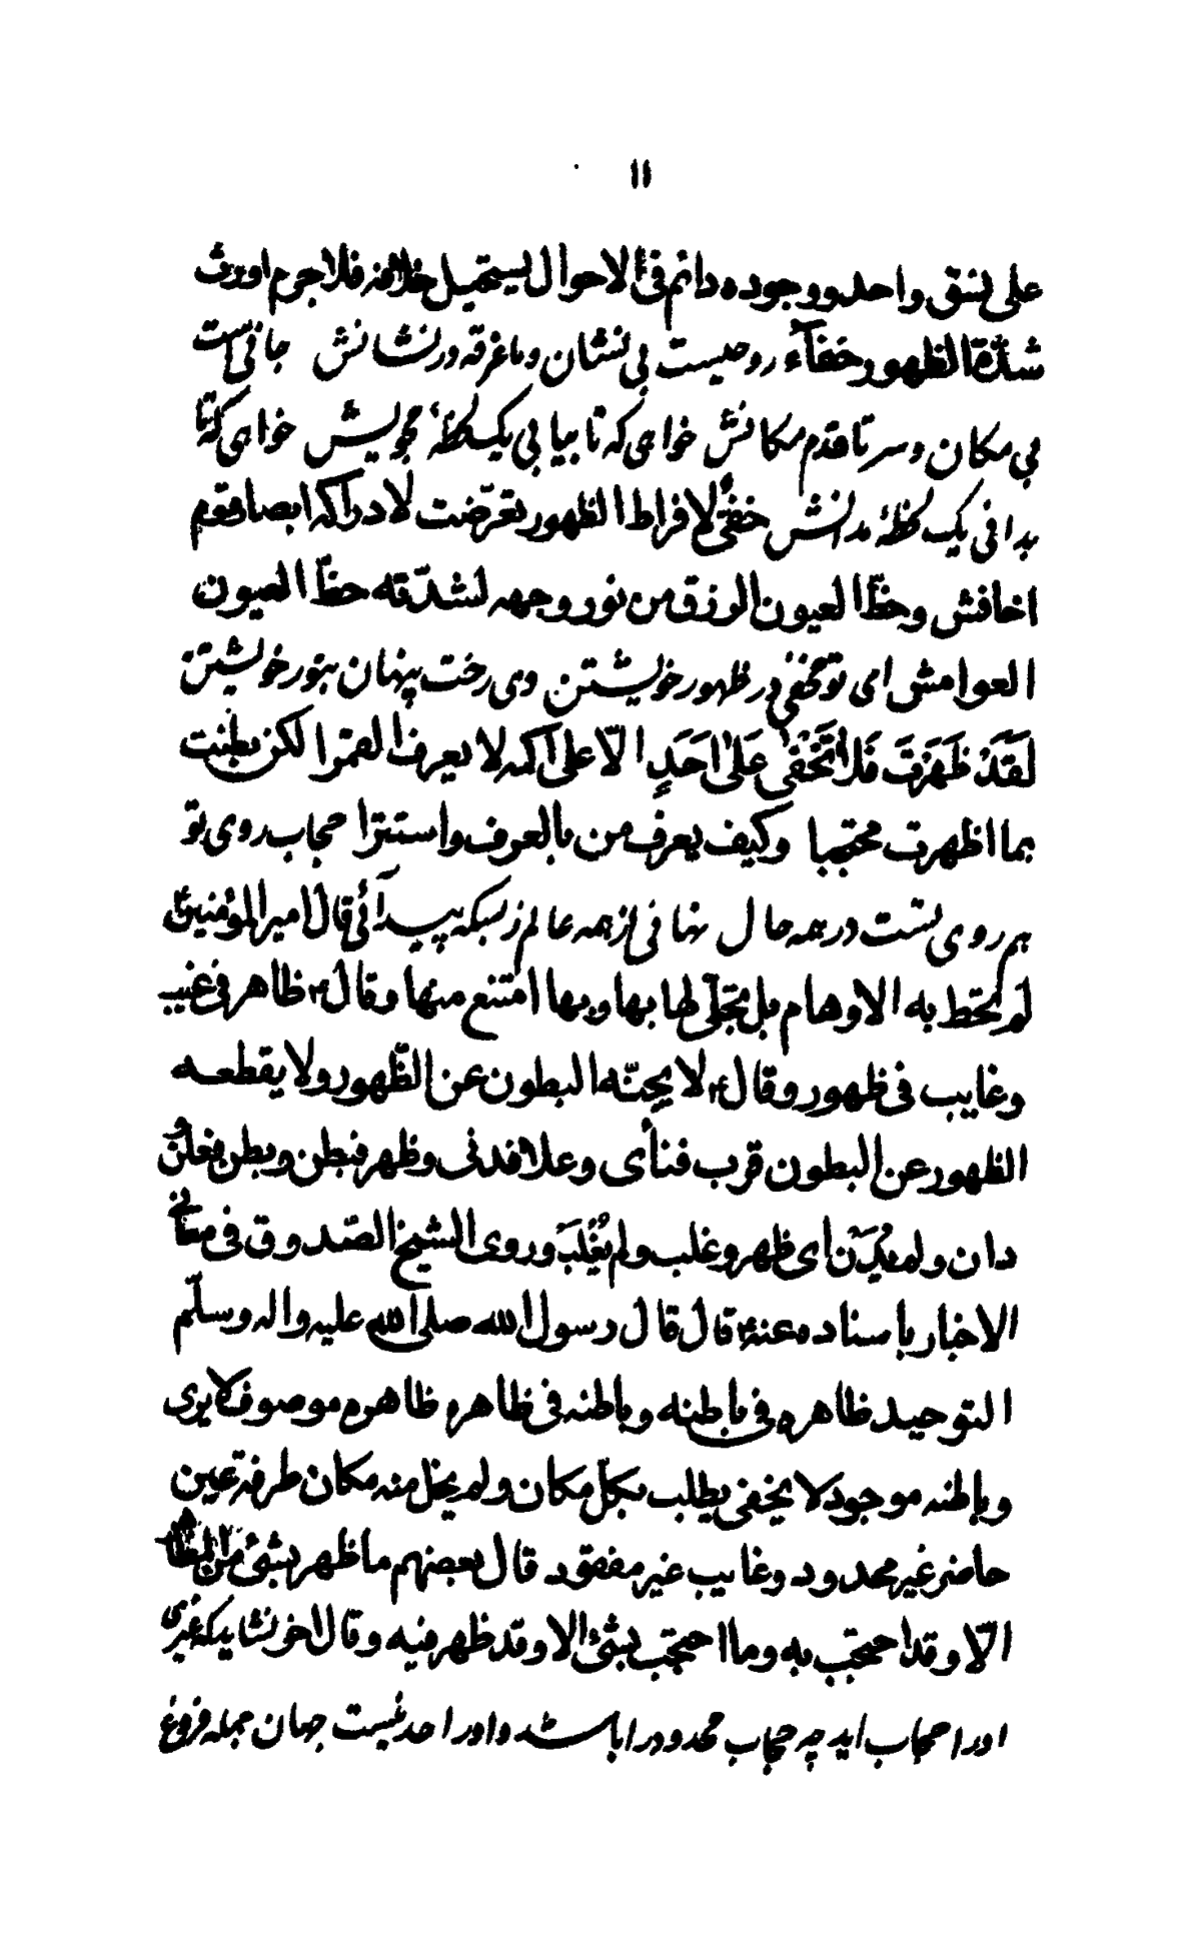 ١١
على نسق واحد ووجوده دائم فى الاحوال يستحيل خلافه فلا جرم اورث
شدّة الظهور خفاء روحيست بى نشان وما غرقه در نشانش جانيست
بى مكان وسر تا قدم مكانش خواهى كه تا بيابى يك لحظه مجويش خواهى كه تا
بدانى يك لحظه مدانش خفىّ لافراط الظهور تعرّضت لادراكه ابصار قوم
اخافش وحظّ العيون الزرق من نور وجهه لشدّته حظّ العيون
العوامش اى تو مخفى در ظهور خويشتن وى رخت پنهان بنور خويشتن
لَقَدْ ظَهَرْتَ فَلا تَخْفى عَلى اَحَدٍ الّا على اكمه لا يعرف القمرا لكن بطنت
بما اظهرت محتجبا وكيف يعرف من بالعرف واستترا حجاب روى تو
هم روى تست در همه حال نهانى از همه عالم ز بسكه پيدائى قال امير المؤمنين ع
لم تحط به الاوهام بل تجلّى لها بها وبها امتنع منها وقال ع ظاهر فى غيب
وغايب فى ظهور وقال ع لا يجنّه البطون عن الظّهور ولا يقطعه
الظهور عن البطون قرب فنأى وعلا فدنى وظهر فبطن وبطن فعلن و
دان ولم يُدَن اى ظهر وغلب ولم يُغْلَبْ وروى الشيخ الصّدوق فى معانى
الاخبار باسناده عنه ع قال قال رسول الله صلى الله عليه واله وسلّم
التوحيد ظاهره فى باطنه وباطنه فى ظاهره ظاهره موصوف لا يرى
وباطنه موجود لا يخفى يطلب بكل مكان ولم يخل منه مكان طرفة عين
حاضر غير محدود وغايب غير مفقود قال بعضهم ما ظهر بشئ من المظاهر
الّا وقد احتجب به وما احتجب بشئ الا وقد ظهر فيه وقال اخر نشايد كه غيرى
اورا حجاب ايد چه حجاب محدود را باشد واورا حد نيست جهان جمله فروغ